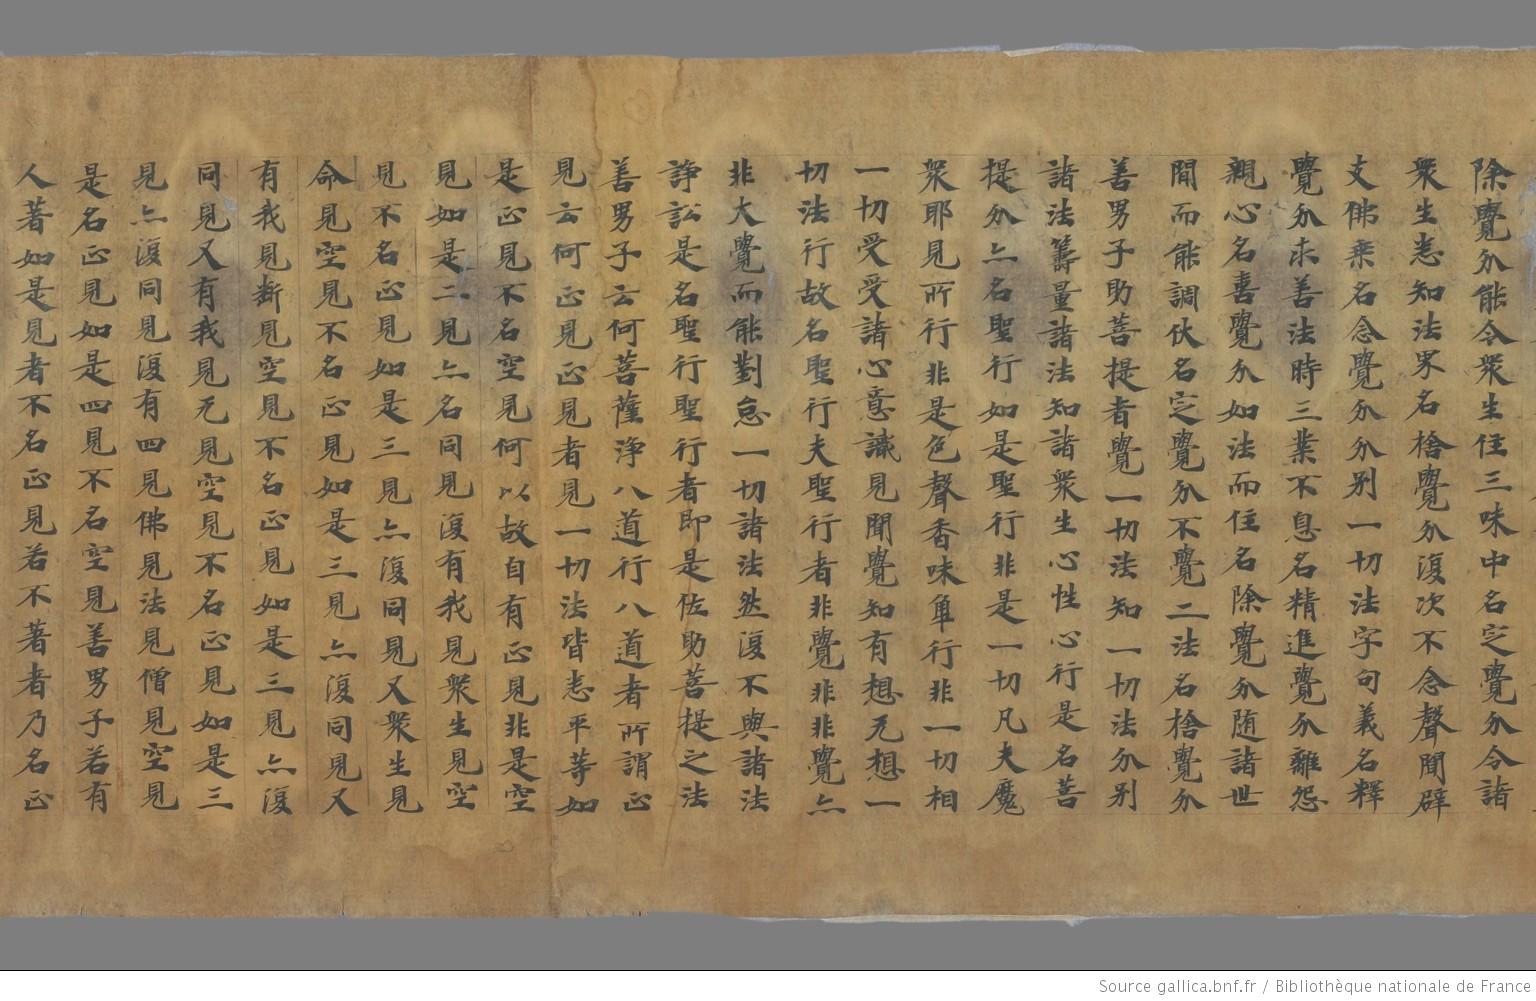 除覺分能令衆生住三味中名定覺分令諸
衆生悉知法界名捨覺分復次不念聲聞辟
支佛乗名念覺分分別一切法字句義名釋
覺分求善法時三業不息名精進覺分離怨
親心名喜覺分如法而住名除覺分随諸世
間而能調伏名定覺分不覺二法名捨覺分
善男子助菩提者覺一切法知一切法分別
諸法籌量諸法知諸衆生心性心行是名菩
提分亦名聖行如是聖行非是一切凡夫魔
衆耶見所行非是色聲香味 行非一切相
一切受受諸心意識見聞覺知有想无想一
切法行故名聖行夫聖行者非覺非非覺亦
非大覺而能對怠一切諸法然復不與諸法
諍訟是名聖行聖行者即是佐助菩提之法
善男子云何菩薩浄八道行八道者所謂正
見云何正見正見者見一切法皆悉平等如
是正見不名空見何以故自有正見非是空
見如是二見亦名同見復有我見衆生見空
見不名正見如是三見亦復同見又衆生見
命見空見不名正見如是三見亦復同見又
有我見斷見空見不名正見如是三見亦復
同見又有我見无見空見不名正見如是三
見亦復同見復有四見佛見法見僧見空見
是名正見如是四見不名空見善男子若有
人著如是見者不名正見若不著者乃名正
Source gallica.bnf.fr / Bibliothèque nationale de France